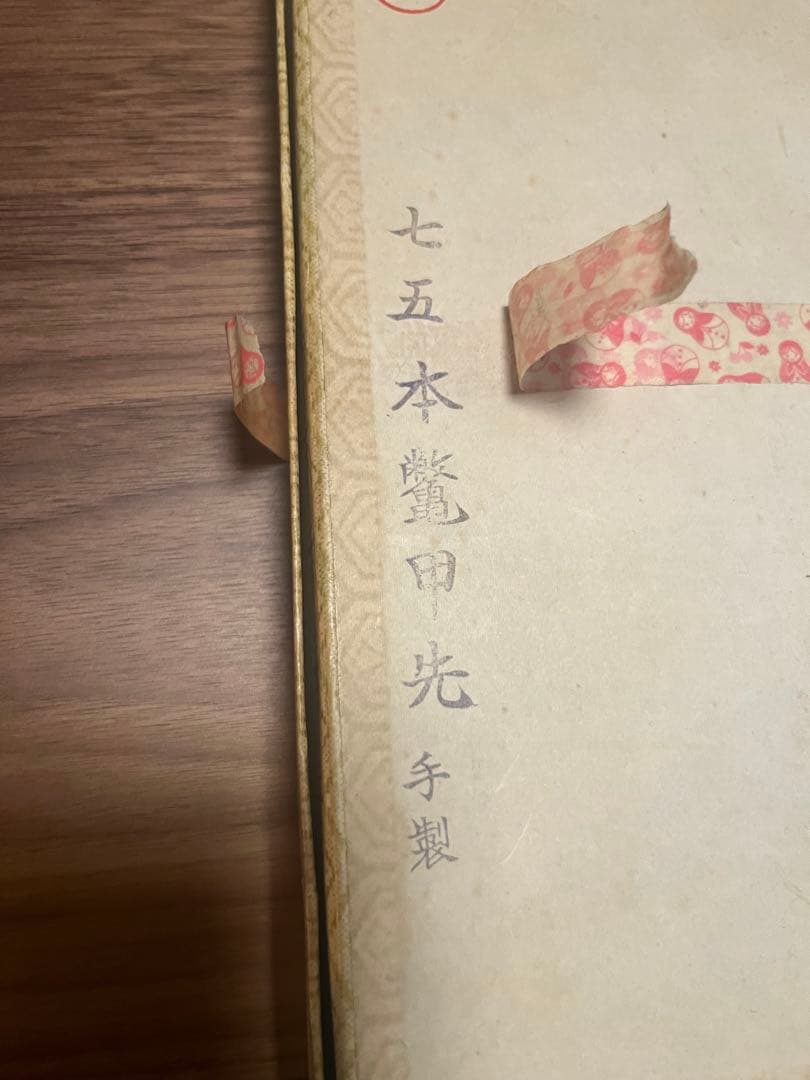 七五本鼈甲先手製